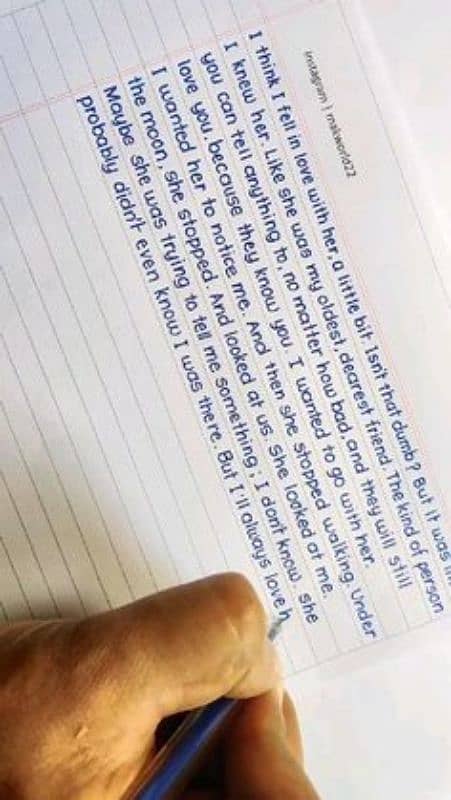 Instagram | makworld22
I think I fell in love with her, a little bit. Isn't that dumb? But it was
I knew her. Like she was my oldest dearest friend. The kind of person
you can tell anything to, no matter how bad, and they will still
love you, because they know you. I wanted to go with her.
I wanted her to notice me. And then she stopped walking. Under
the moon, she stopped. And looked at us. She looked at me.
Maybe she was trying to tell me something; I don't know. she
probably didn't even know I was there. But I'll always love